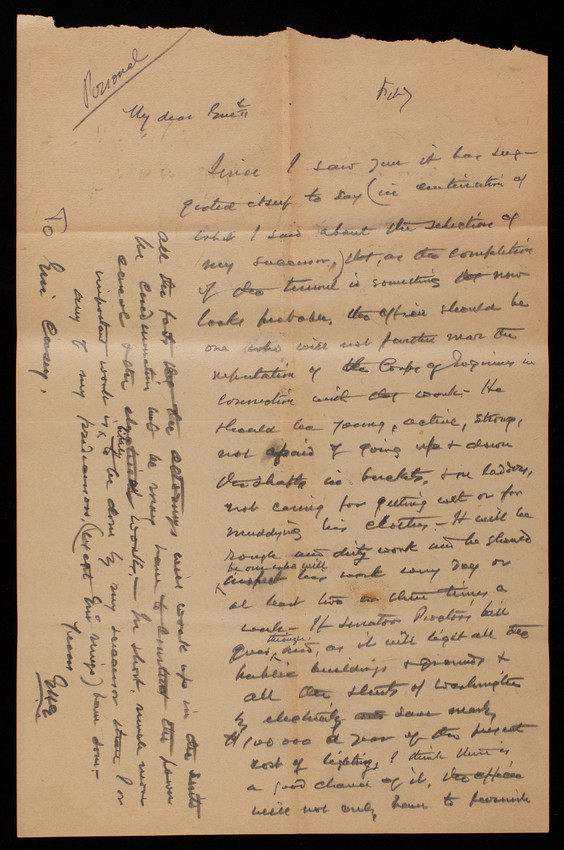 Personal
My dear Gen'l
Since I saw you it has sug-
gested itself to say (in continuation of
what I said about the selection of
my successor,) that, as the completion
of the tunnel is something now
looks probable, the officer should be
one who will not further mar the
reputation of the Corps of Engineers in
connection with that work. He
should be young, active, strong,
not afraid of going up & down
the shafts in buckets, & on ladders,
not caring for getting wet or for
muddying his clothes. - It will be
rough and dirty work and he should
be one who will
inspect his work every day or
at least two or three times a
week - If Senator Proctors bill
goes through, and, as it will light all the
public buildings & grounds &
all the streets of Washington
by electricity and save nearly
$100 000 a year of the present
cost of lighting, I think there is
a good chance of it, the officer
will not only have to furnish
all the facts the attorneys will work up in the suits
he may have to conduct the power
canal & the electrical works, - In short, much more
important work is likely to be done by my successor than I or
any of my predecessors, (except Gen'l Meigs) have done -
Yours
To Gen Casey,